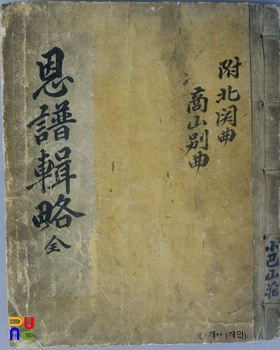 附北関曲
商山別曲
恩譜輯略 全
小邑山莊
개** (개인)